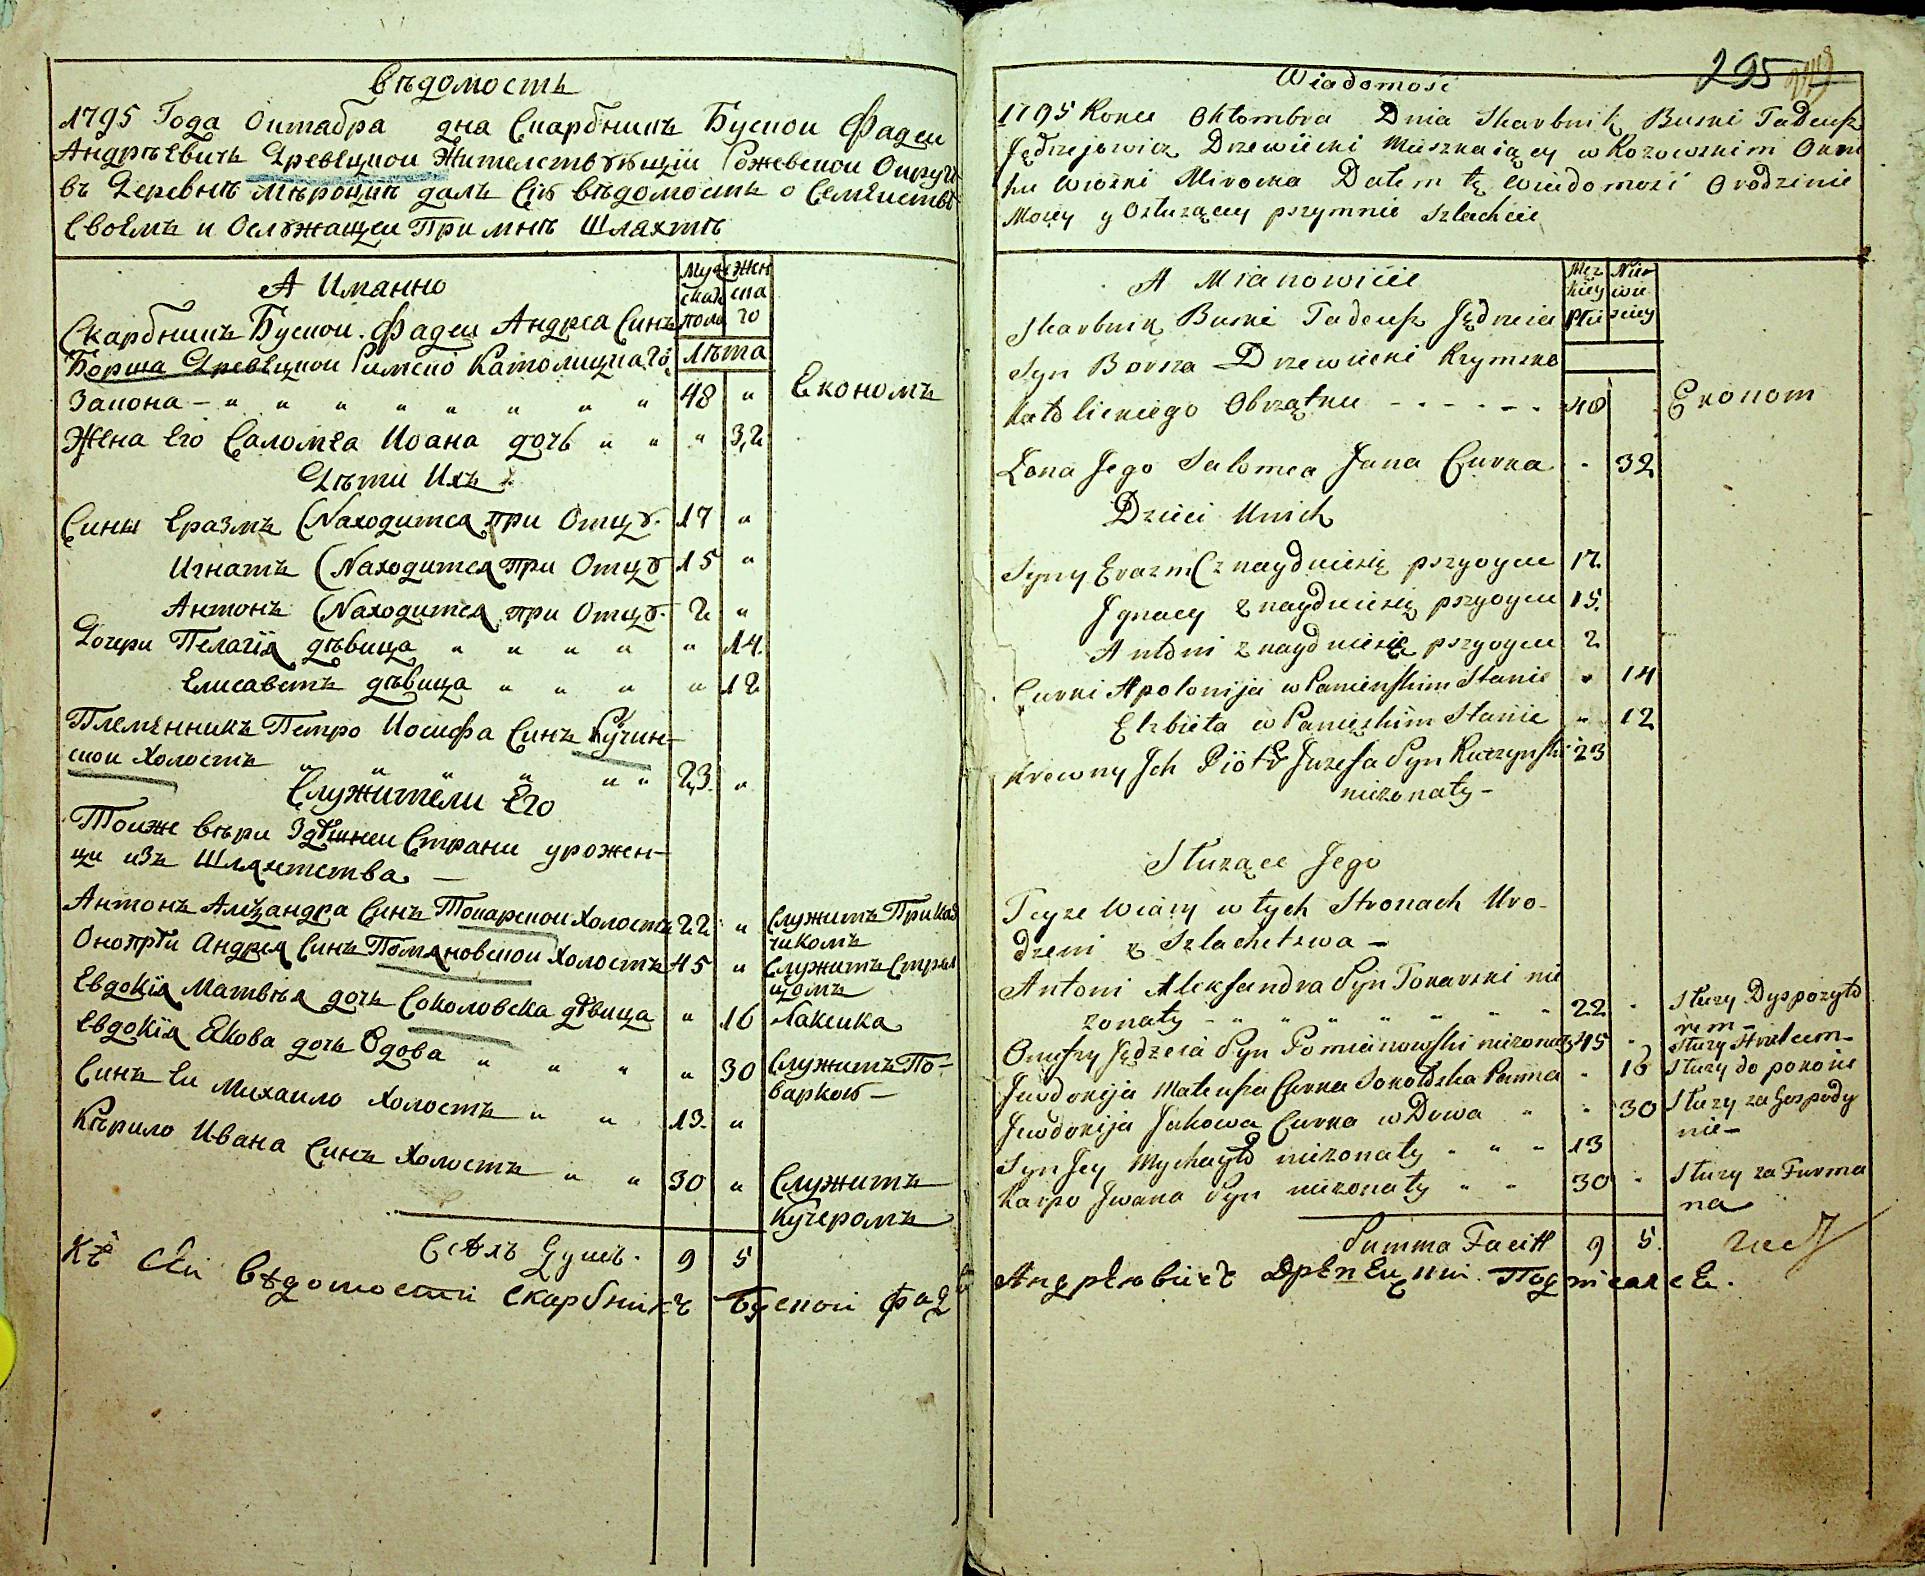 Вѣдомость
1795 Года Октабра дна Скарбникъ Буской Фадей
Андрѣевичъ Древецкой Жителствующїй Рожевской Округи
въ Деревнѣ Мѣроцкѣ далъ Сїю вѣдомость о Семействѣ
Своемъ и Ослужащей При мнѣ Шляхтѣ
А Иманно
Мужескаго пола
Женскаго
Лѣта
Скарбникъ Буской Фадей Андреа Синъ
Борща Древецкой Римско Католицкаго
Закона 48 Економъ
Жена Его Саломеа Иоана дочь 32
Дѣти Ихъ
Сины Еразмъ (Находитса при Отцу 17
Игнатъ (Находитса при Отцу 15
Антонъ (Находитса при Отцу 2
Дочери Пелагїя дѣвица 14
Елисаветъ дѣвица 12
Племѣнникъ Петро Иосифа Синъ Кучин-
ской Холостъ 23
Служители Его
Тоиже вѣри Здѣшнеи Страни урожен-
ци изъ Шляхтства
Антонъ Алеѯандра Синъ Токарской Холостъ 22 Служитъ Прикащикомъ
Онопрїй Андрея Синъ Помяновской Холостъ 45 Служитъ Стрелцомъ
Евдокїя Матвѣя дочь Соколовска дѣвица 16
Евдокїя Якова дочь Вдова 30 Служитъ По-
варкою
Синъ Еи Михаило Холостъ 13
Кѣрило Ивана Синъ Холостъ 30 Служитъ
Кучеромъ
Всѣхъ Душъ 9 5
Къ Сей Вѣдомости Скарбникъ Буской Фадей
295
Wiadomość
1795 Roku Oktombra Dnia Skarbnik Buski Tadeusz
Jędrzejowicz Drzewiecki Mieszkaiący w Rozowskim Okru
hu wioski Mirocka Dałem tę Wiadomość O rodzinie
Moiey y Osłuzącey przymnie szlachcie
A Mianowicie
Męzkiey płci
Niewieściey
Skarbnik Buski Tadeusz Jędrzeia
Syn Borsza Drzewiecki Rzymsko
Katolickiego Obrządku 48 Ekonom
Zona Jego Salomea Jana Curka 32
Dzieci Unich
Syny Erazm (znayduiesię przyoycu 17
Jgnacy znayduiesię przyoycu 15
Antoni znayduiesię przyoycu 2
Curki Apolonija w Panieńskim Stanie 14
Elzbieta w Panieskim Stanie 12
Krewny Jch Piotr Juzefa Syn Kuczynski 23
niezonaty
Słuzące Jego
Teyze Wiary w tych Stronach Uro-
dzeni z Szlachetswa
Antoni Aleksandra Syn Tokarski nie
zonaty 22 Słuzy Dyspozyto
rem
Onufry Jędzeia Syn Pomianowski niezonaty 45 Słuzy Strzelcem
Jewdokija Mateusza Curka Sokołoska Panna 16 Słuzy do pokoiu
Jewdokija Jakowa Curka wDowa 30 Słuzy za Gospody
nie
Syn Jey Mychayło niezonaty 13
Karpo Jwana Syn niezonaty 30 Słuzy za Furma
na
Summa Facitt 9 5
Андрѣовичъ Древецкий Подписался.